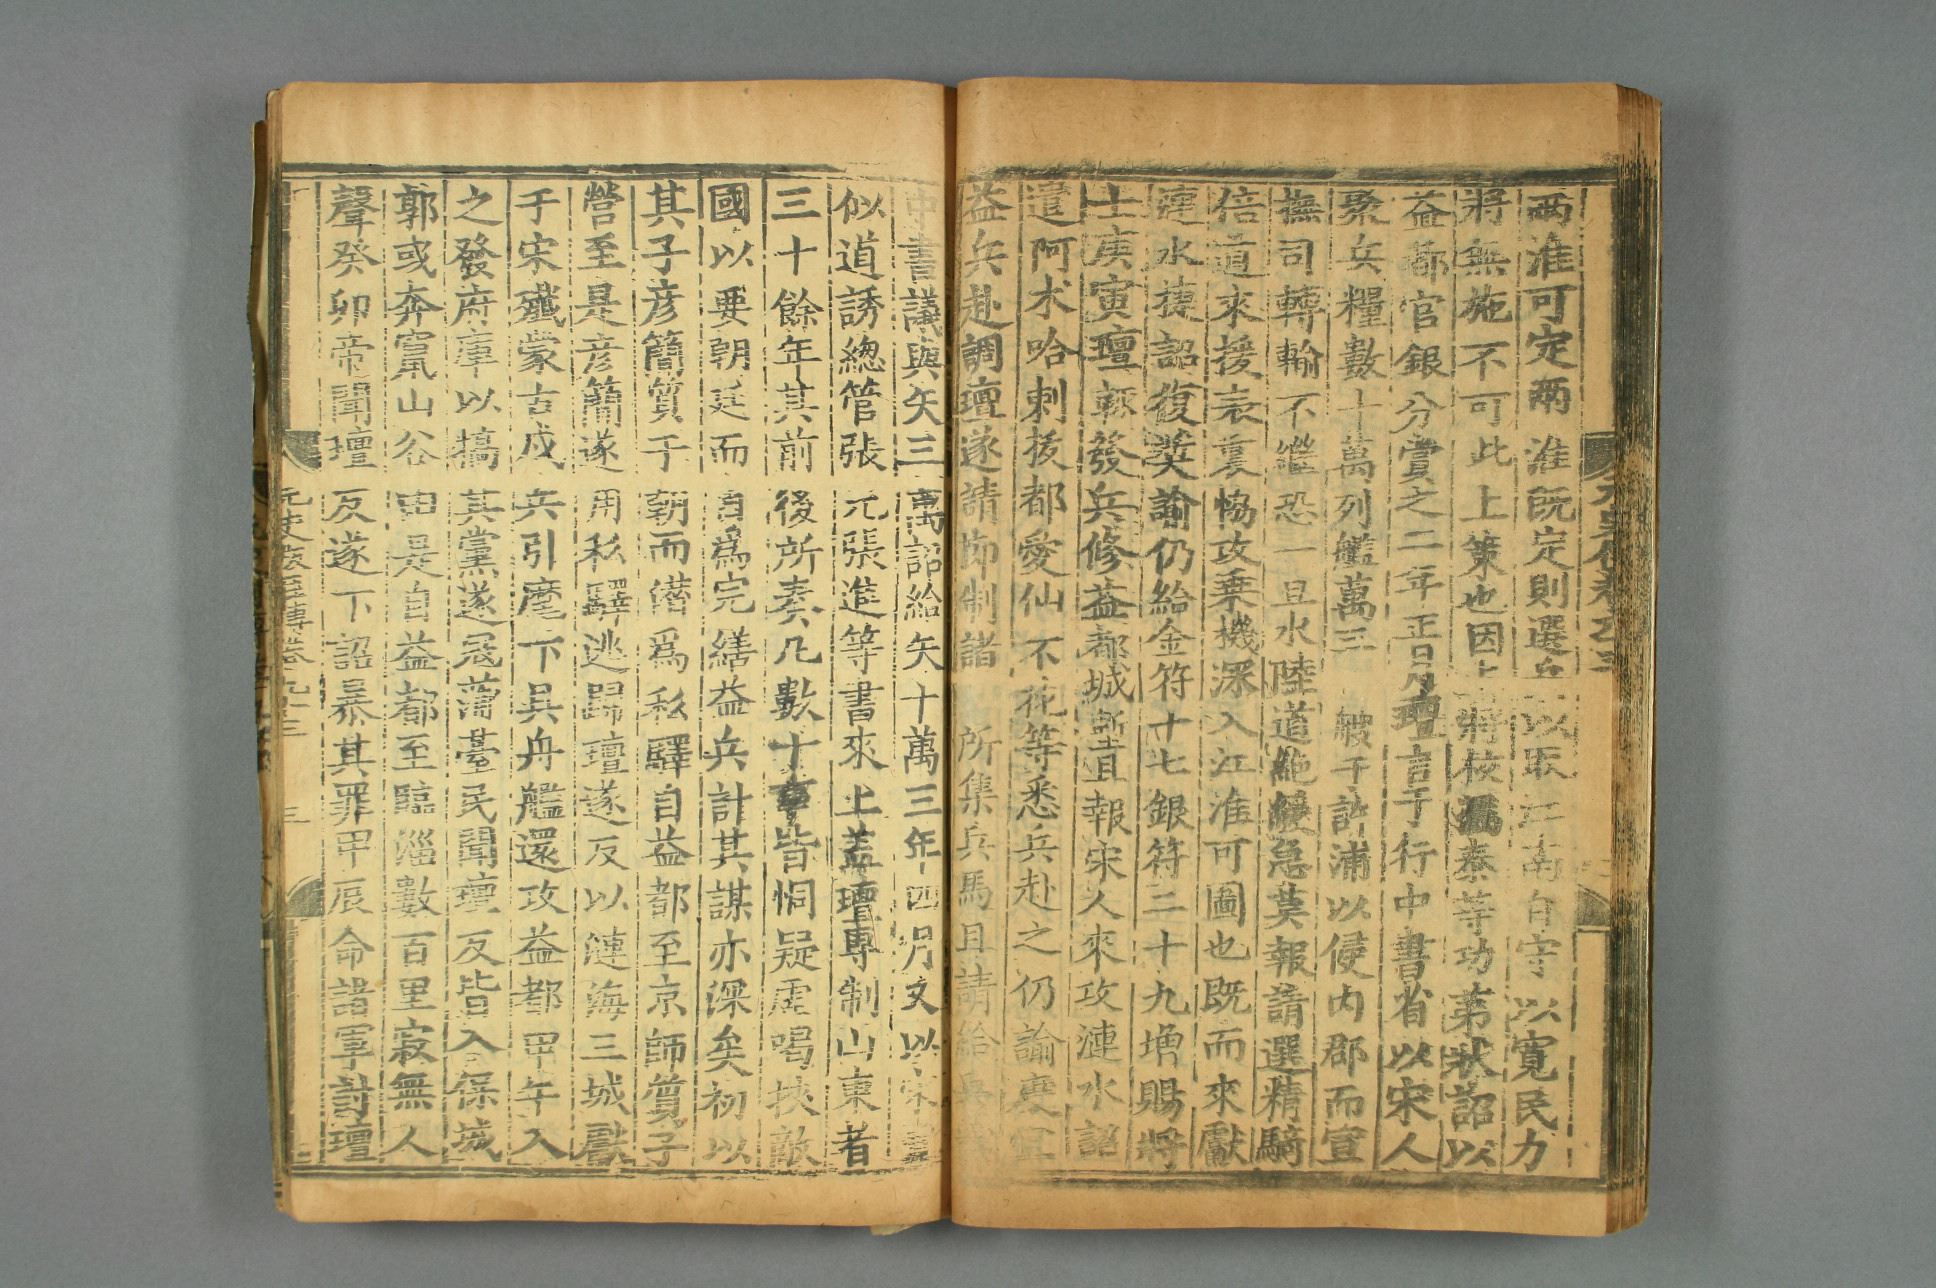 兩淮可定兩淮既定則選兵以取江南自守以寬民力
將無施不可此上策也因上將校馮泰等功第狀詔以
益都官銀分賞之二年正月璮言于行中書省以宋人
聚兵糧數十萬列艦萬三艘于許浦以侵內郡而宣
撫司轉輸不繼恐一旦水陸道絕緩急莫報請選精騎
倍道來援表裏恊攻乗機深入江淮可圖也既而來獻
漣水捷詔復奬諭仍給金符十七銀符二十九增賜將
士庚寅璮輙發兵修益都城塹且報宋人來攻漣水詔
遣阿朮哈剌拔都愛仙不花等悉兵赴之仍諭度宜
益兵赴調璮遂請節制諸 所集兵馬且請給
中書議與矢三萬詔給矢十萬三年四月又以宋
似道誘總管張元張進等書來上蓋璮專制山東者
三十餘年其前後所奏凡數十事皆恫疑虛喝挾敵
國以要朝廷而自爲完繕益兵計其謀亦深矣初以
其子彥簡質于朝而僣爲私驛自益都至京師質子
營至是彥簡遂用私驛逃歸璮遂反以漣海三城獻
于宋殲蒙古戍兵引麾下具舟艦還攻益都甲午入
之發府庫以犒其黨遂冦蒲臺民聞璮反皆入保城
郭或奔竄山谷由是自益都至臨淄數百里寂無人
聲癸卯帝聞璮反遂下詔暴其罪甲辰命諸軍討璮